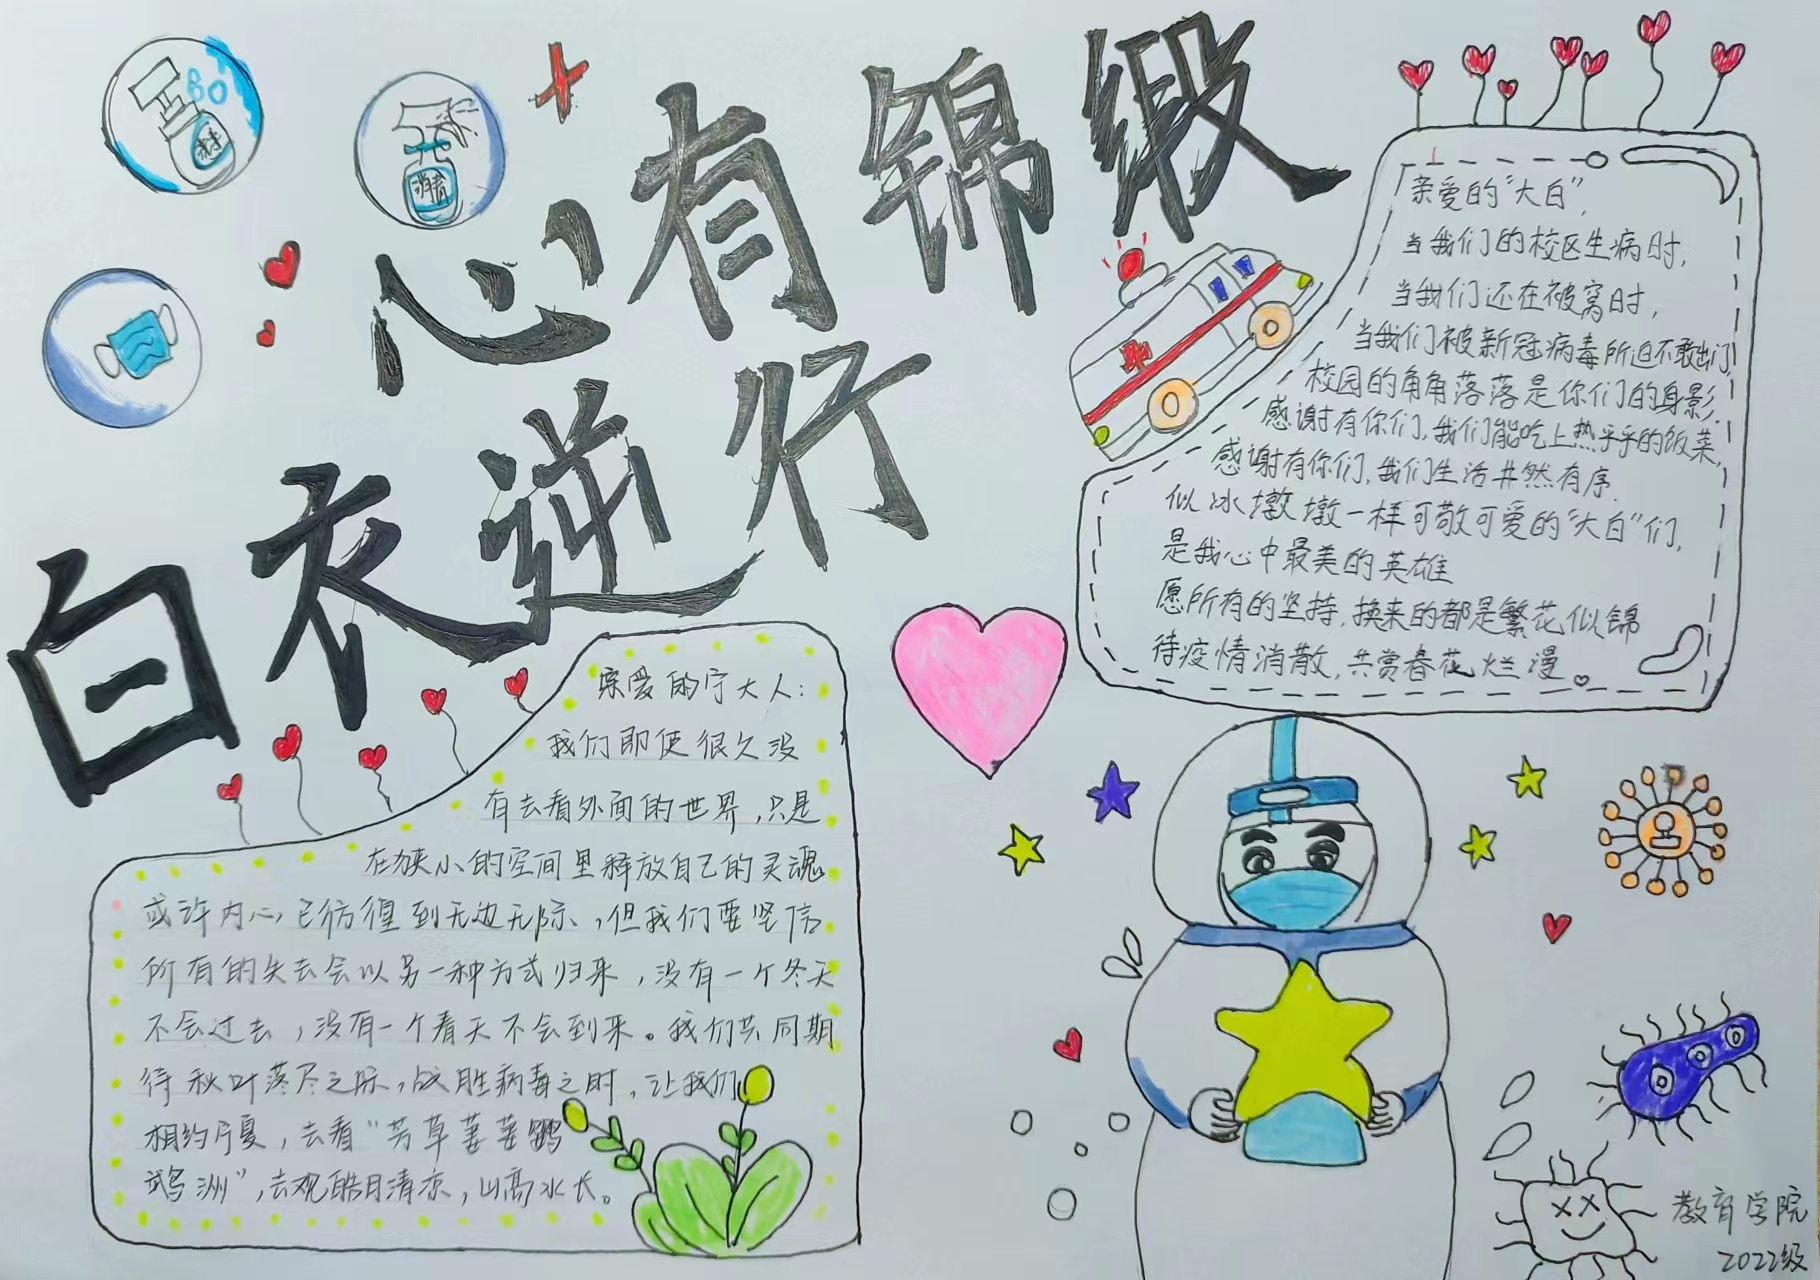 心有锦缎
白衣逆行
亲爱的“大白”,
当我们的校区生病时,
当我们还在被窝时,
当我们被新冠病毒所迫不敢出门,
校园的角角落落是你们的身影.
感谢有你们,我们能吃上热乎乎的饭菜,
感谢有你们,我们生活井然有序.
似冰墩墩一样可敬可爱的“大白”们,
是我心中最美的英雄
愿所有的坚持,换来的都是繁花似锦
待疫情消散,共赏春花烂漫。
亲爱的宁大人:
我们即使很久没
有去看外面的世界,只是
在狭小的空间里释放自己的灵魂
或许内心已彷徨到无边无际,但我们要坚信
所有的失去会以另一种方式归来,没有一个冬天
不会过去,没有一个春天不会到来。我们共同期
待秋叶落尽之际,战胜病毒之时,让我们
相约宁夏,去看“芳草萋萋鹦
鹉洲”,去观皓月清凉,山高水长。
教育学院
2022级